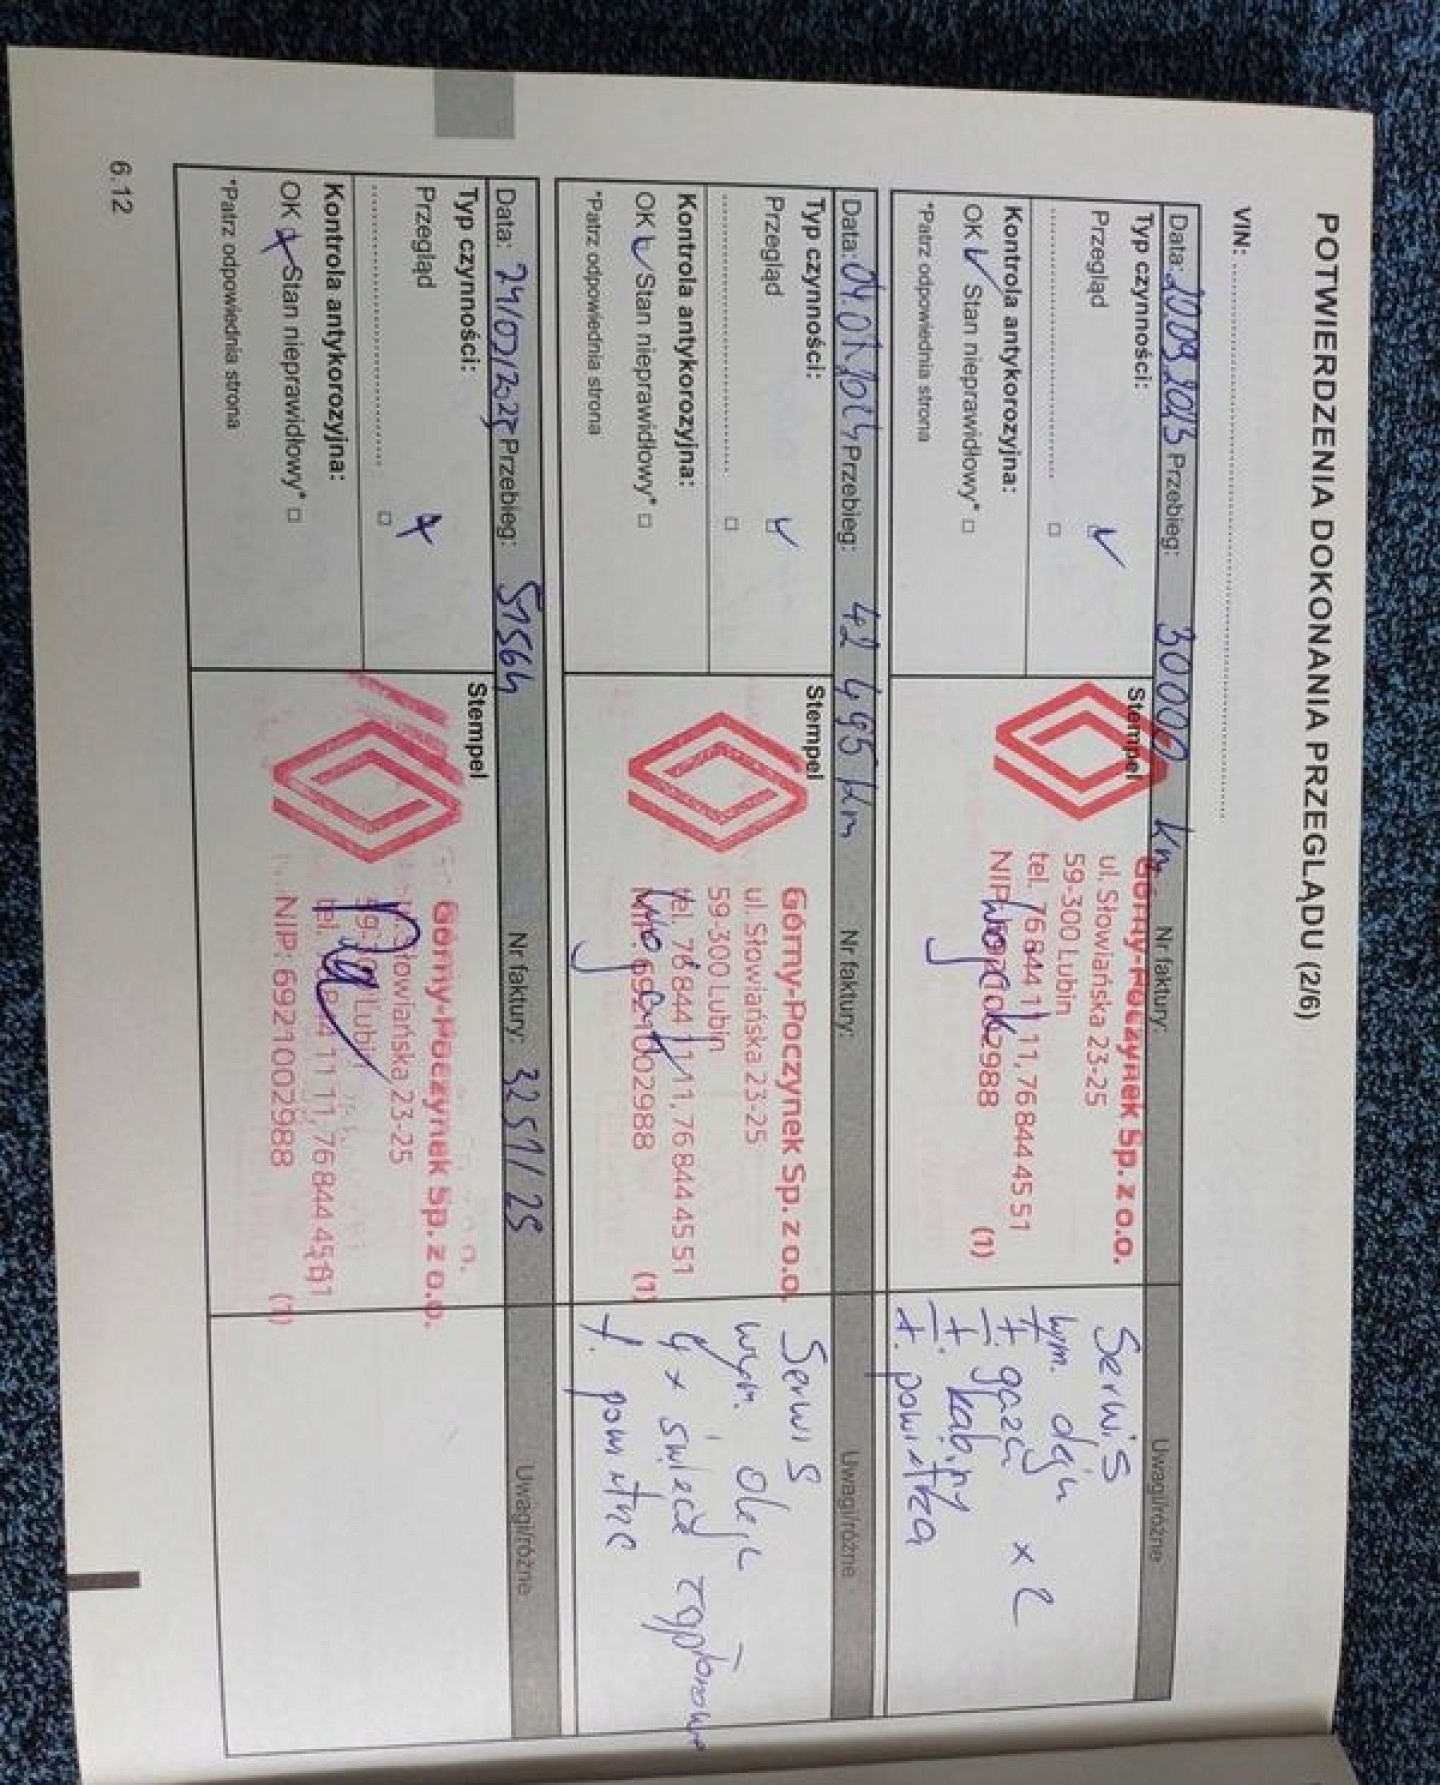 POTWIERDZENIA DOKONANIA PRZEGLĄDU (2/6)
VIN:
Data: 20.09.2023 Przebieg: 30000 km Nr faktury: Uwagi/różne
Typ czynności:
Przegląd
Kontrola antykorozyjna:
OK Stan nieprawidłowy*
*Patrz odpowiednia strona
Stempel
Górny-Poczynek Sp. z o.o.
ul. Słowiańska 23-25
59-300 Lubin
tel. 76 844 11 11, 76 844 45 51
NIP: 6921002988
(1)
Serwis
wym. oleju
f. gazu x 2
f. kabiny
f. powietrza
Data: 04.07.2024 Przebieg: 42 495 km Nr faktury: Uwagi/różne
Typ czynności:
Przegląd
Kontrola antykorozyjna:
OK Stan nieprawidłowy*
*Patrz odpowiednia strona
Stempel
Górny-Poczynek Sp. z o.o.
ul. Słowiańska 23-25
59-300 Lubin
tel. 76 844 11 11, 76 844 45 51
NIP: 6921002988
(1)
Serwis
wym. oleju
4 x świece zapłonowe
f. powietrze
Data: Przebieg: 51564 Nr faktury: 3251/25 Uwagi/różne
Typ czynności:
Przegląd
Kontrola antykorozyjna:
OK Stan nieprawidłowy*
*Patrz odpowiednia strona
Stempel
Górny-Poczynek Sp. z o.o.
ul. Słowiańska 23-25
59-300 Lubin
tel. 76 844 11 11, 76 844 45 51
NIP: 6921002988
(1)
6.12